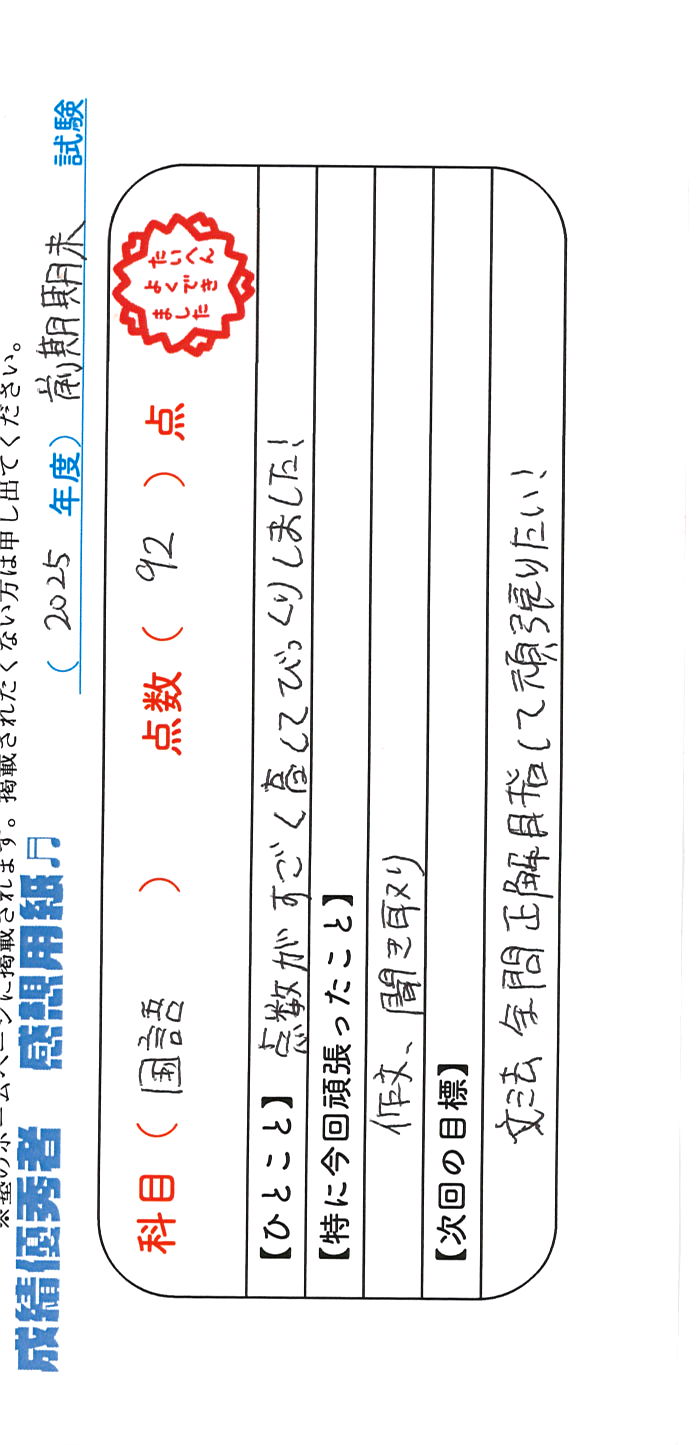 ※塾のホームページに掲載されます。掲載されたくない方は申し出てください。
成績優秀者 感想用紙♬
(2025 年度) 前期期末 試験
科目( 国語 ) 点数( 92 )点
たいへん
よくでき
ました
【ひとこと】 点数がすごく高くてびっくりしました!
【特に今回頑張ったこと】
作文、聞き取り
【次回の目標】
文法全問正解目指して頑張りたい!